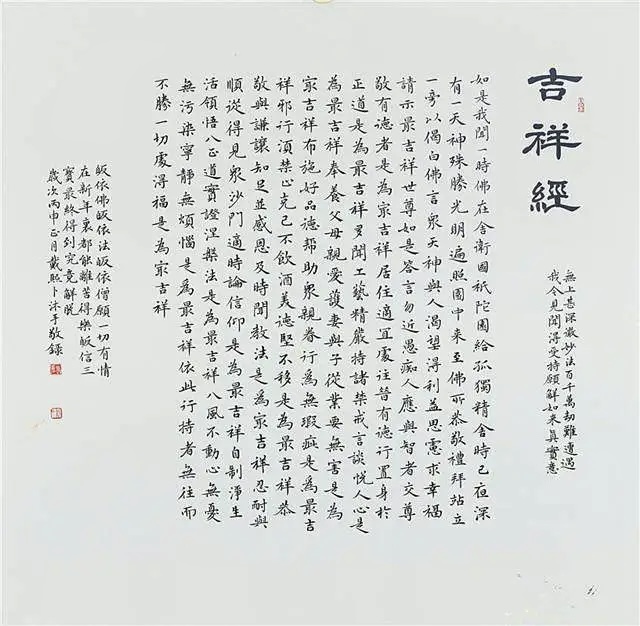 吉祥經
無上甚深微妙法百千萬劫難遭遇
我今見聞得受持願解如来真實意
如是我聞一時佛在舍衛國祇陀園給孤獨精舍時已夜深
有一天神殊勝光明遍照園中来至佛所恭敬禮拜站立
一旁以偈白佛言衆天神與人渴望得利益思慮求幸福
請示最吉祥世尊如是答言勿近愚痴人應與智者交尊
敬有德者是為冣吉祥居住適宜處往昔有德行置身於
正道是為最吉祥多聞工藝精嚴持諸禁戒言談悅人心是
為最吉祥奉養父母親愛護妻與子從業要無害是為
冣吉祥布施好品德幫助衆親眷行為無瑕疵是為最吉
祥邪行須禁止克己不飲酒美德堅不移是為最吉祥恭
敬與謙讓知足並感恩及時聞教法是為冣吉祥忍耐與
順從得見衆沙門適時論信仰是為最吉祥自制淨生
活領悟八正道實證涅槃法是為最吉祥八風不動心無憂
無污染寧靜無煩惱是為最吉祥依此行持者無往而
不勝一切處得福是為冣吉祥
皈依佛皈依法皈依僧願一切有情
在新年裏都能離苦得樂皈信三
寶最終得到究竟解脫
歲次丙申正月戴熙卜沐手敬錄